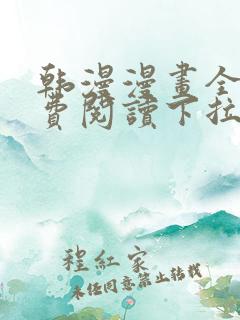 韩漫漫畫全
費閱讀下拉
程紅家
未经同意禁止转载